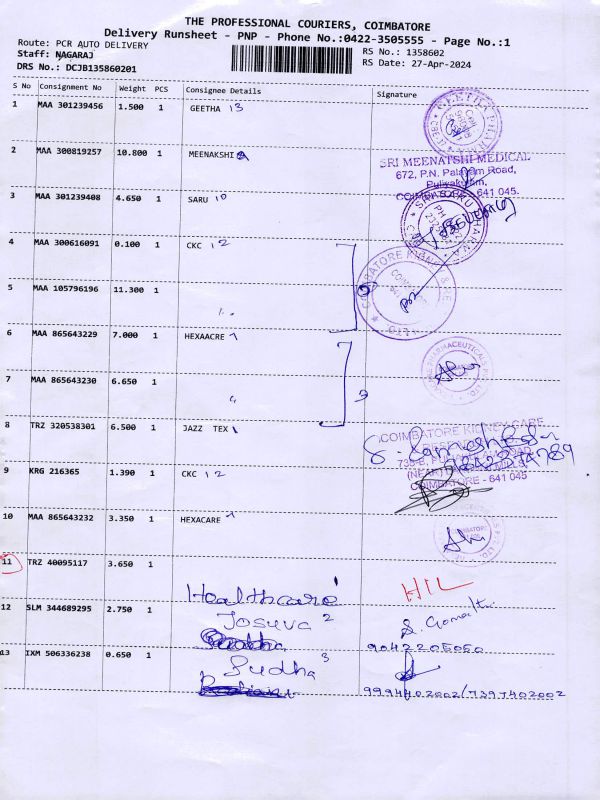 THE PROFESSIONAL COURIERS, COIMBATORE
Delivery Runsheet - PNP - Phone No.:0422-3505555 - Page No.:1
Route: PCR AUTO DELIVERY
RS No.: 1358602
Staff: NAGARAJ
RS Date: 27-Apr-2024
DRS No.: DCJB135860201
S No Consignment No Weight PCS Consignee Details Signature
1 MAA 301239456 1.500 1 GEETHA 13
2 MAA 300819257 10.800 1 MEENAKSHI
SRI MEENATSHI MEDICAL
672, P.N. Palayam Road,
Puliyakulam,
COIMBATORE - 641 045.
3 MAA 301239408 4.650 1 SARU 10
4 MAA 300616091 0.100 1 CKC 12
5 MAA 105796196 11.300 1
6 MAA 865643229 7.000 1 HEXAACRE
7 MAA 865643230 6.650 1
8 TRZ 320538301 6.500 1 JAZZ TEX
COIMBATORE KIDNEY CARE
9 KRG 216365 1.390 1 CKC 12
COIMBATORE - 641 045
10 MAA 865643232 3.350 1 HEXACARE
11 TRZ 40095117 3.650 1
Healthcare
HIL
12 SLM 344689295 2.750 1 Josuva 2
S. Gomathi
9042205050
13 IXM 506336238 0.650 1 Sudha 3
9994402002/7397402002